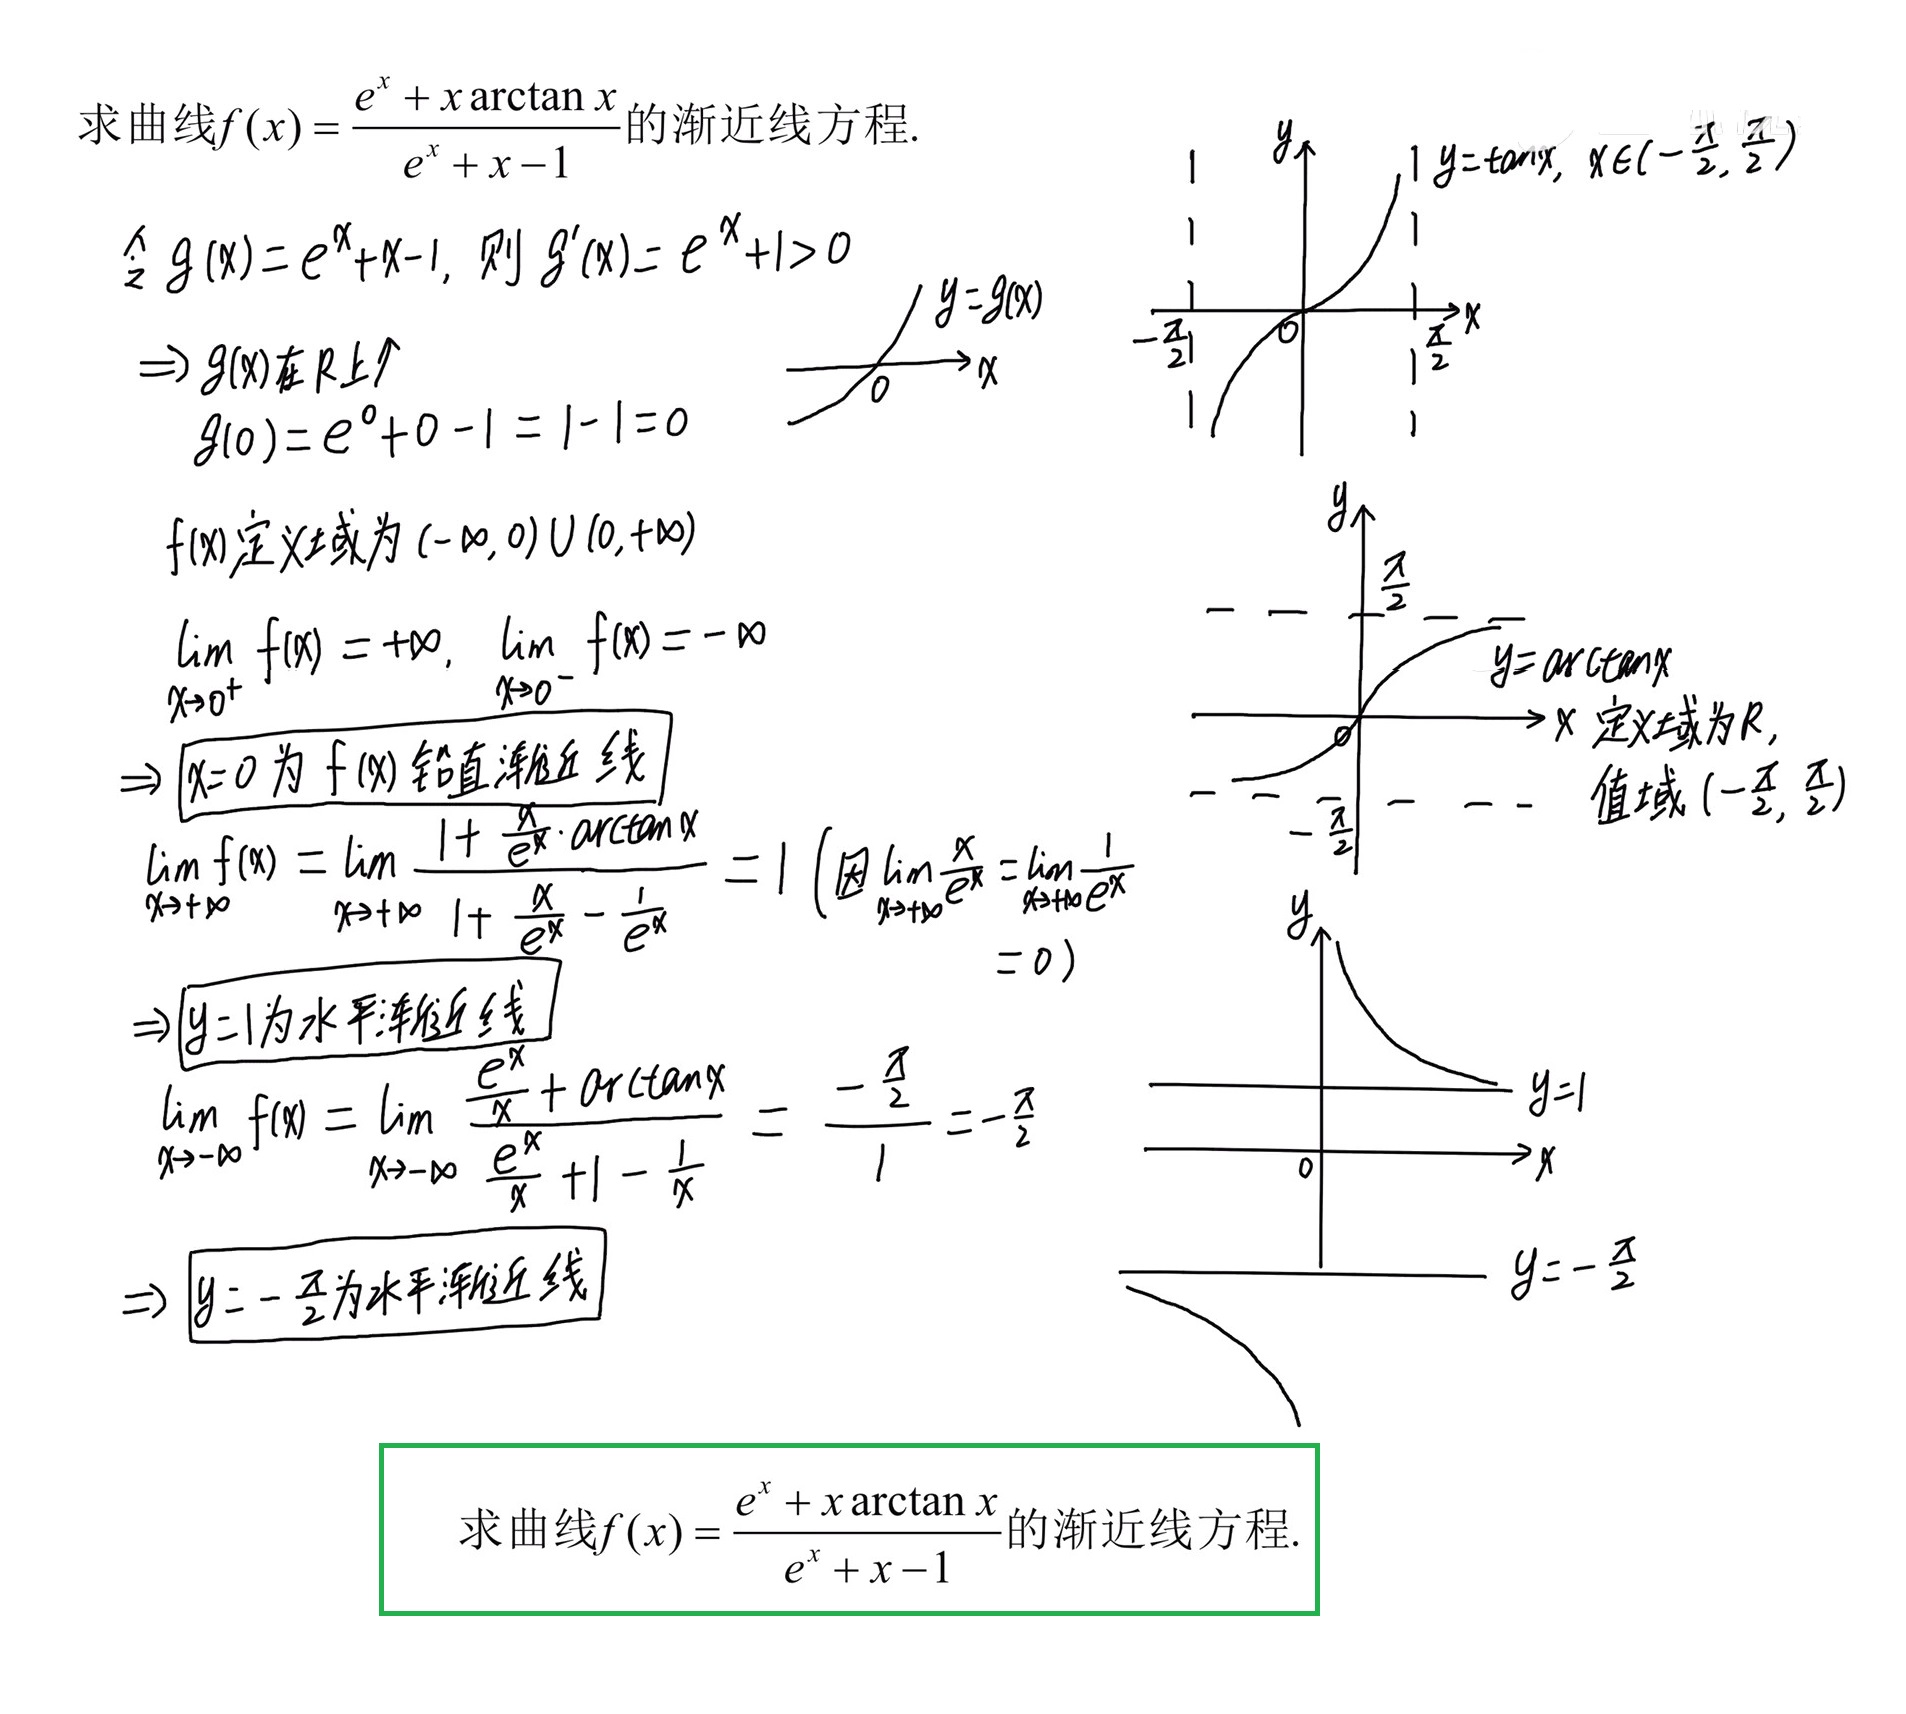 求曲线f(x) = \frac{e^x + x arctan x}{e^x + x - 1}的渐近线方程.
令 g(x) = e^x+x-1, 则 g'(x) = e^x+1>0
⇒ g(x)在R上↑
g(0) = e^0+0-1 = 1-1=0
y=g(x)
0
x
f(x)定义域为(-∞,0)∪(0,+∞)
\lim_{x→0^+} f(x) = +∞, \lim_{x→0^-} f(x) = -∞
⇒ x=0为f(x)铅直渐近线
\lim_{x→+∞} f(x) = \lim_{x→+∞} \frac{1+\frac{x}{e^x}·arctanx}{1+\frac{x}{e^x}-\frac{1}{e^x}} = 1 (因\lim_{x→+∞}\frac{x}{e^x}=\lim_{x→+∞}\frac{1}{e^x}
=0)
⇒ y=1为水平渐近线
\lim_{x→-∞} f(x) = \lim_{x→-∞} \frac{\frac{e^x}{x}+arctanx}{\frac{e^x}{x}+1-\frac{1}{x}} = \frac{-\frac{π}{2}}{1} = -\frac{π}{2}
⇒ y=-\frac{π}{2}为水平渐近线
y
y=tanx, x∈(-\frac{π}{2},\frac{π}{2})
-\frac{π}{2}
0
\frac{π}{2}
x
y
\frac{π}{2}
y=arctanx
0
x
定义域为R,
值域(-\frac{π}{2},\frac{π}{2})
-\frac{π}{2}
y
y=1
0
x
y=-\frac{π}{2}
求曲线f(x) = \frac{e^x + x arctan x}{e^x + x - 1}的渐近线方程.